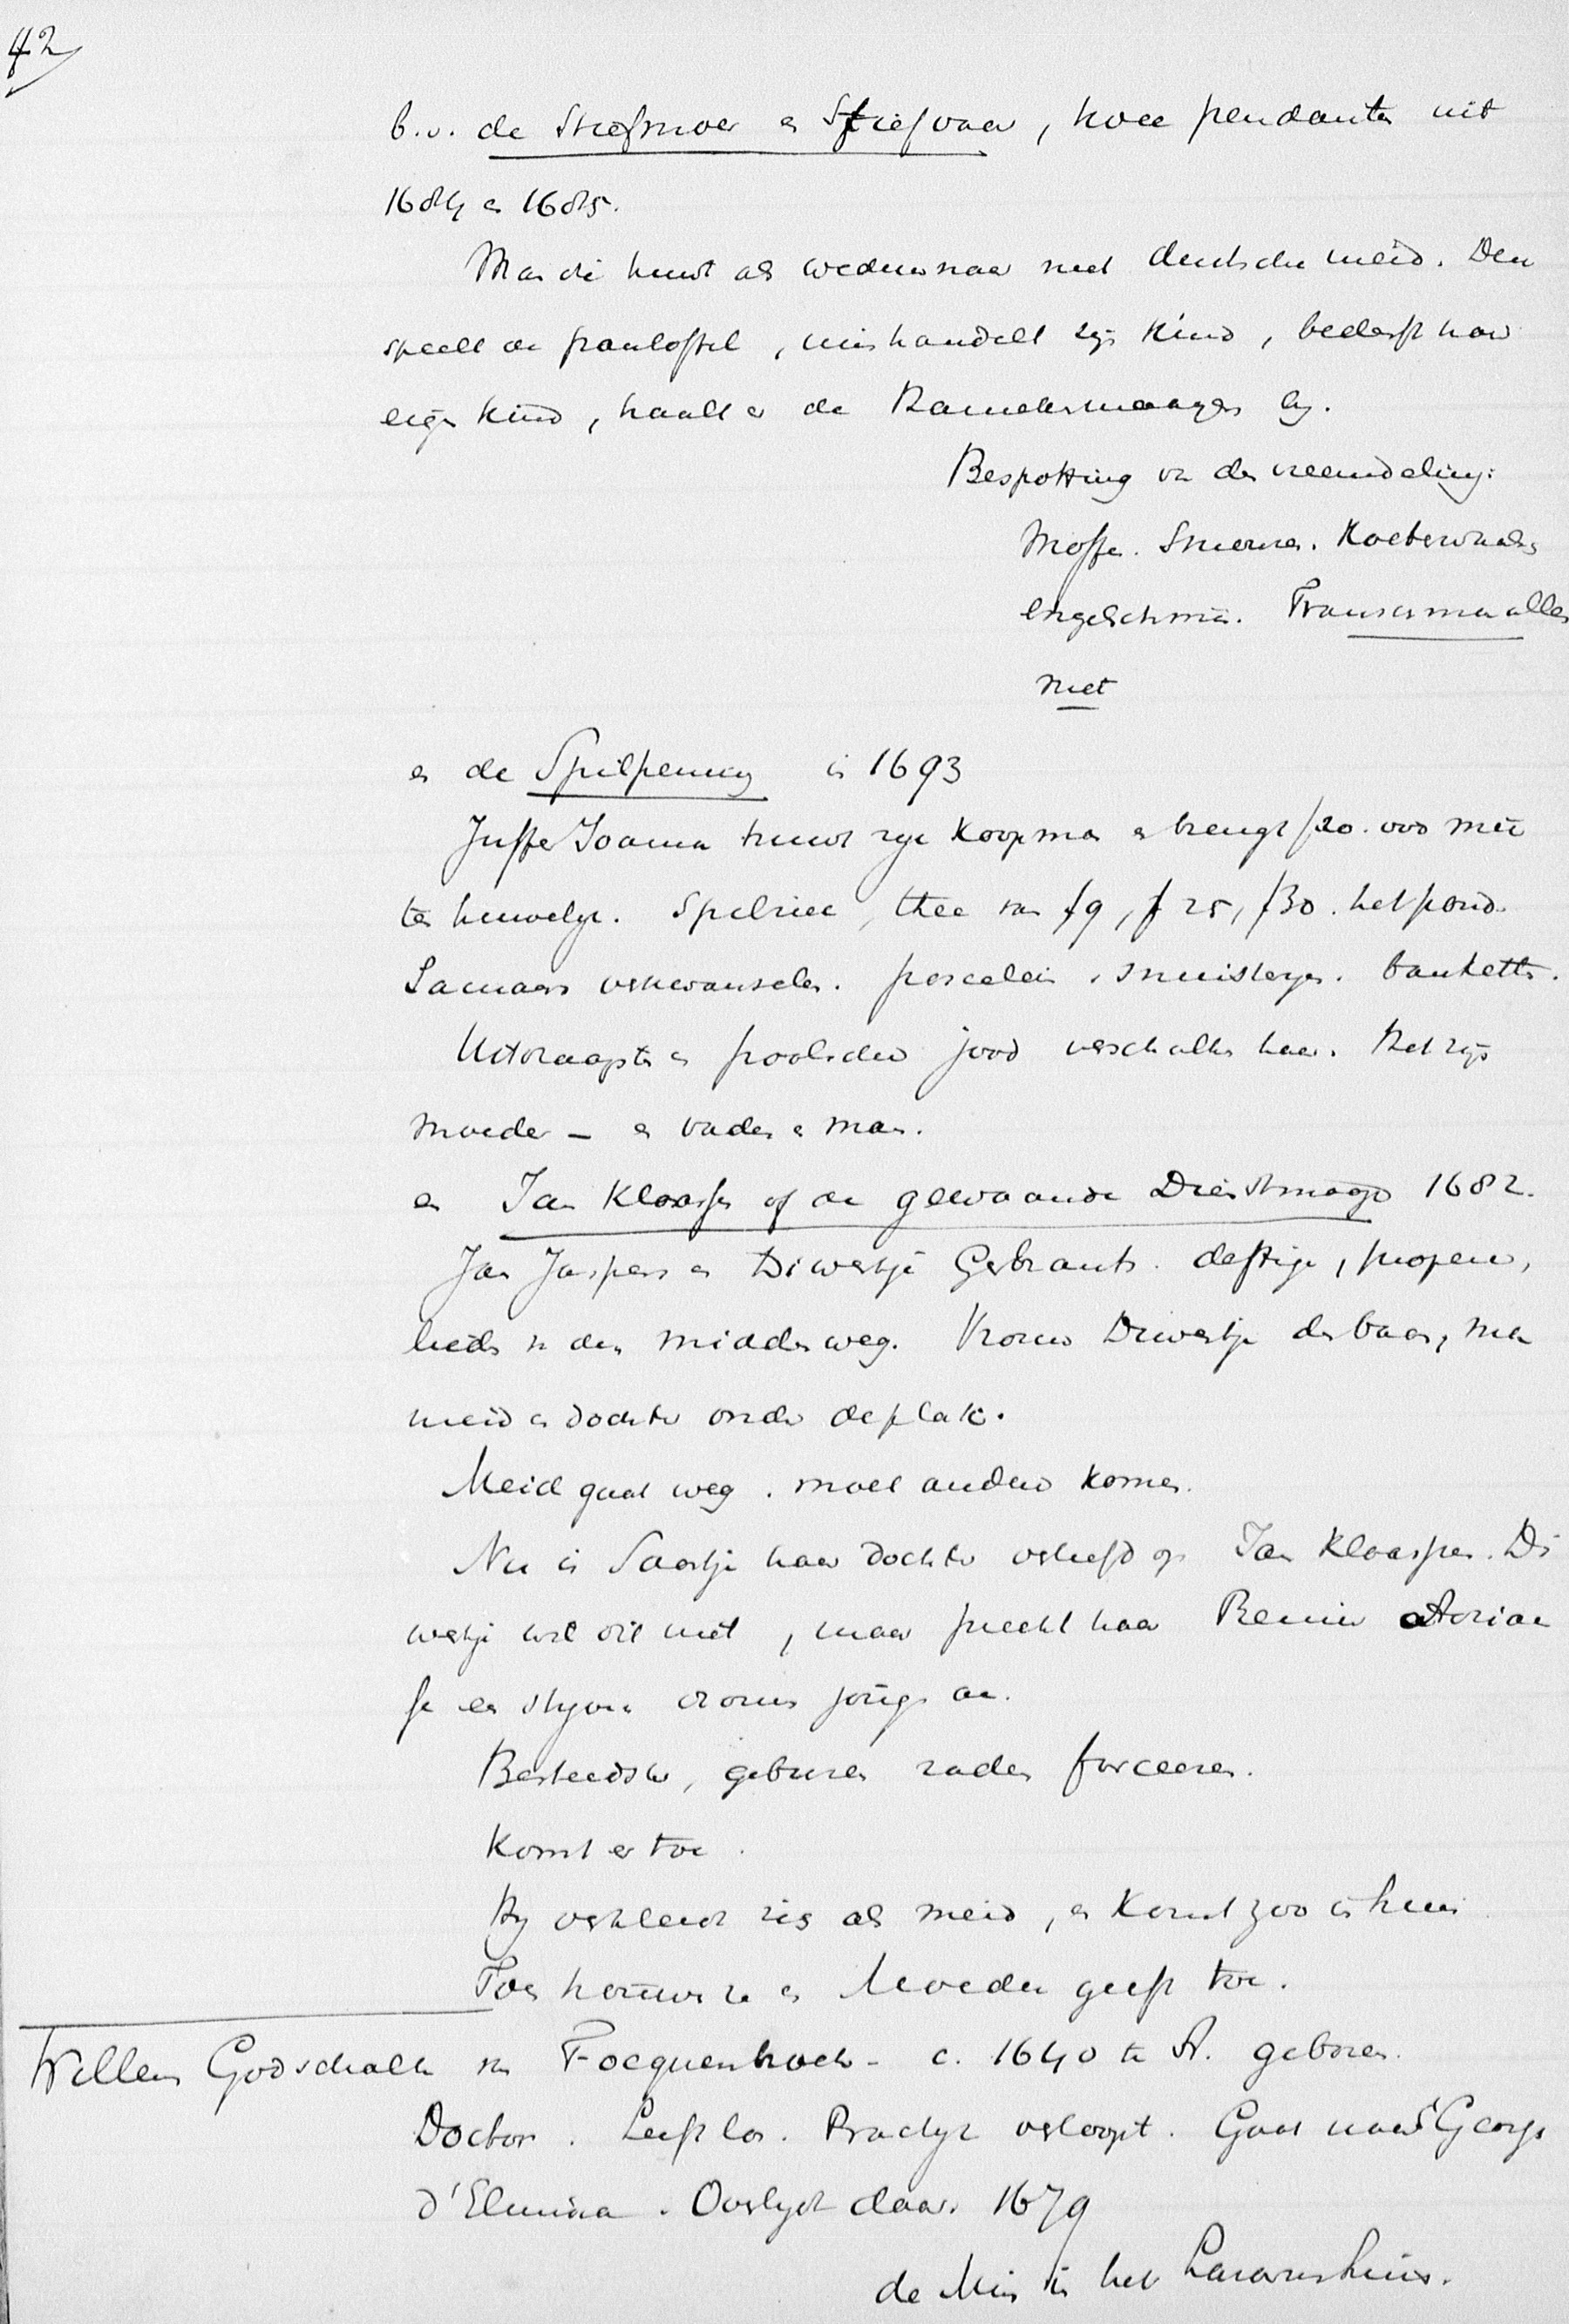 42
b.v. de Stiefmoer en Stiefvaer, twee pendanten uit
1684 en 1685.
Man die huwt als weduwnaar met duitsche meid. Deze
speelt de pantoffel, mishandelt zijn kind, bederft haar
eigen kind, haalt er de Kamermaagden bij.
Bespotting van den vreemdeling:
Moffen. Smerius. Koeterwaals
engelschman. Franschman alles
niet
en de Spilpenning in 1693
Juffer Joanna huwt rijk koopman en brengt ƒ20.000 mee
ten huwelijk. Spelziek, thee van ƒ9, ƒ25, ƒ30 het pond.
Lacunaas verkwanselen. porcelein. snuisterijen. banketten.
Uitdraagster en poolschen jood verschalken haar. Het zijn
moeder – en vader en man.
en Jan Klaassen of de gewaande Dienstmaagd 1682.
Jan Jaspers en Diwertje Gerbrants. deftige, propere,
lieden van den middenweg. Vrouw Diwertje de baas, man
meid en dochter onder de plak.
Meid gaat weg. moet andere komen.
Nu is Saartje haar dochter verliefd op Jan Klaassen. Di
wertje wil dit niet, maar preekt haar Reinier Adriaan
se een stijven vromen jongen aan.
Besteedster, geburen raden forceeren.
Komt er toe.
Hij verkleedt zich als meid, en komt zoo in huis
Toen trouwen ze en Moeder geeft toe.
Willem Godschalk van Focquenbroch – c. 1640 te A. geboren.
Doctor. Leeft los. Practijk verloopt. Gaat naar St George
d'Elmina. Overlijdt daar. 1679
de Min in het Lazarushuis.